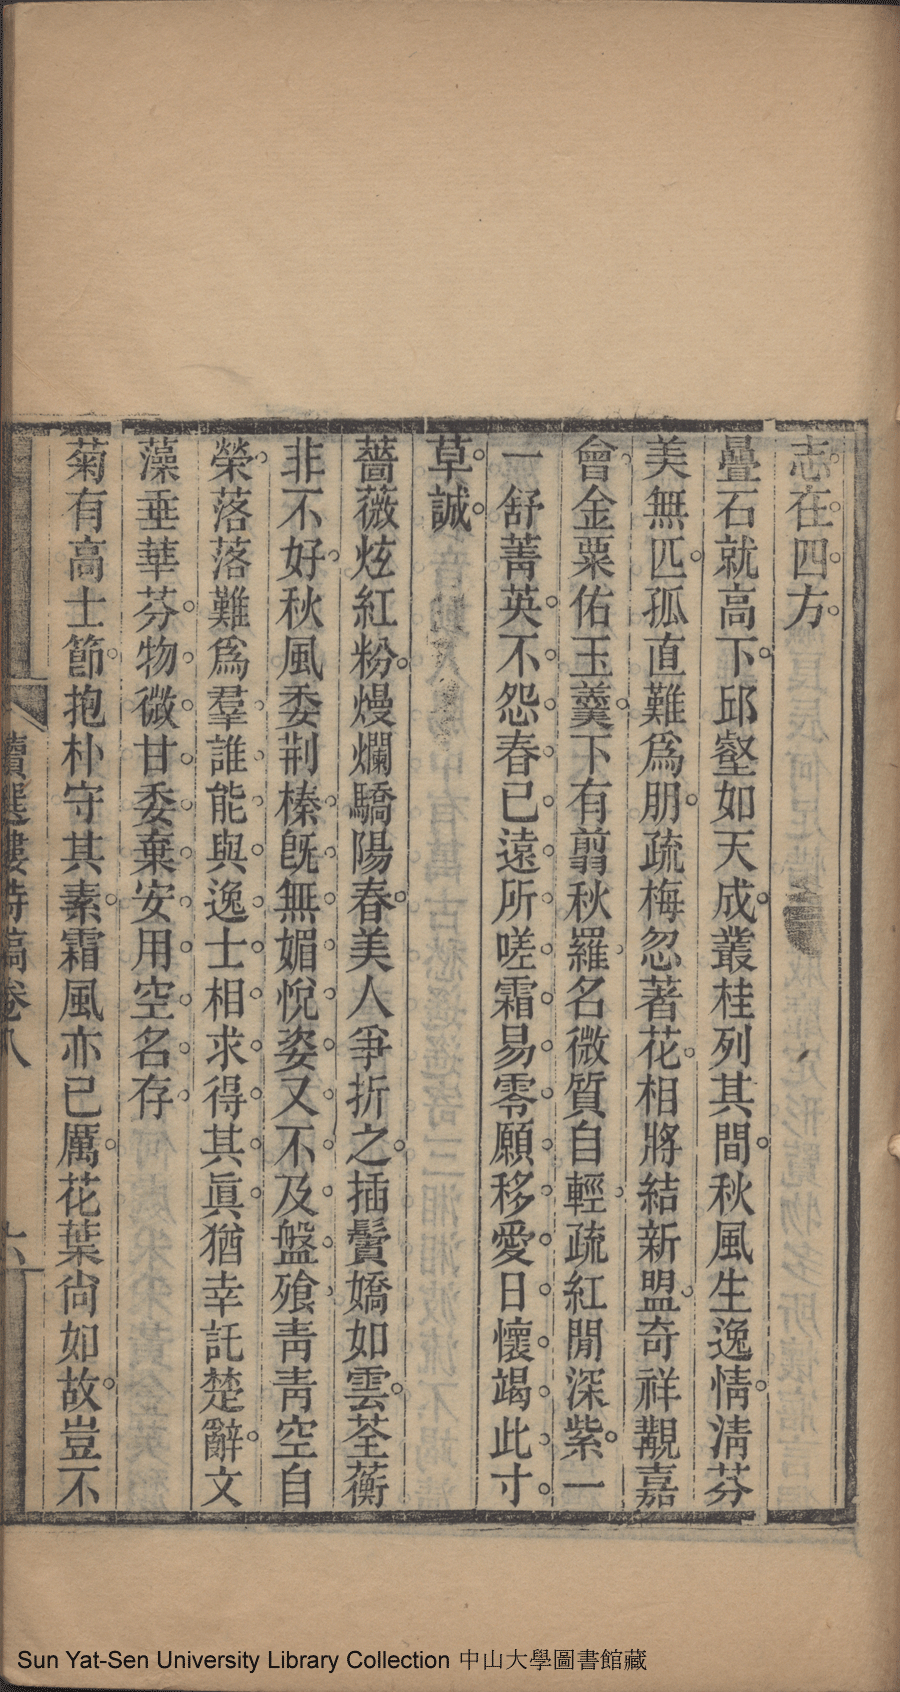 志在四方
疊石就高下邱壑如天成叢桂列其間秋風生逸情淸芬
美無匹孤直難爲朋疏梅忽著花相將結新盟奇祥覯嘉
會金粟佑玉羹下有翦秋羅名微質自輕疏紅閒深紫一
一舒菁英不怨春已遠所嗟霜易零願移愛日懷竭此寸
草誠
薔薇炫紅粉熳爛驕陽春美人爭折之插鬢嬌如雲荃蘅
非不好秋風委荆榛旣無媚悅姿又不及盤飱靑靑空自
榮落落難爲羣誰能與逸士相求得其眞猶幸託楚辭文
藻垂華芬物微甘委棄安用空名存
菊有高士節抱朴守其素霜風亦已厲花葉尙如故豈不
讀選樓詩稿卷八
六
Sun Yat-Sen University Library Collection 中山大學圖書館藏